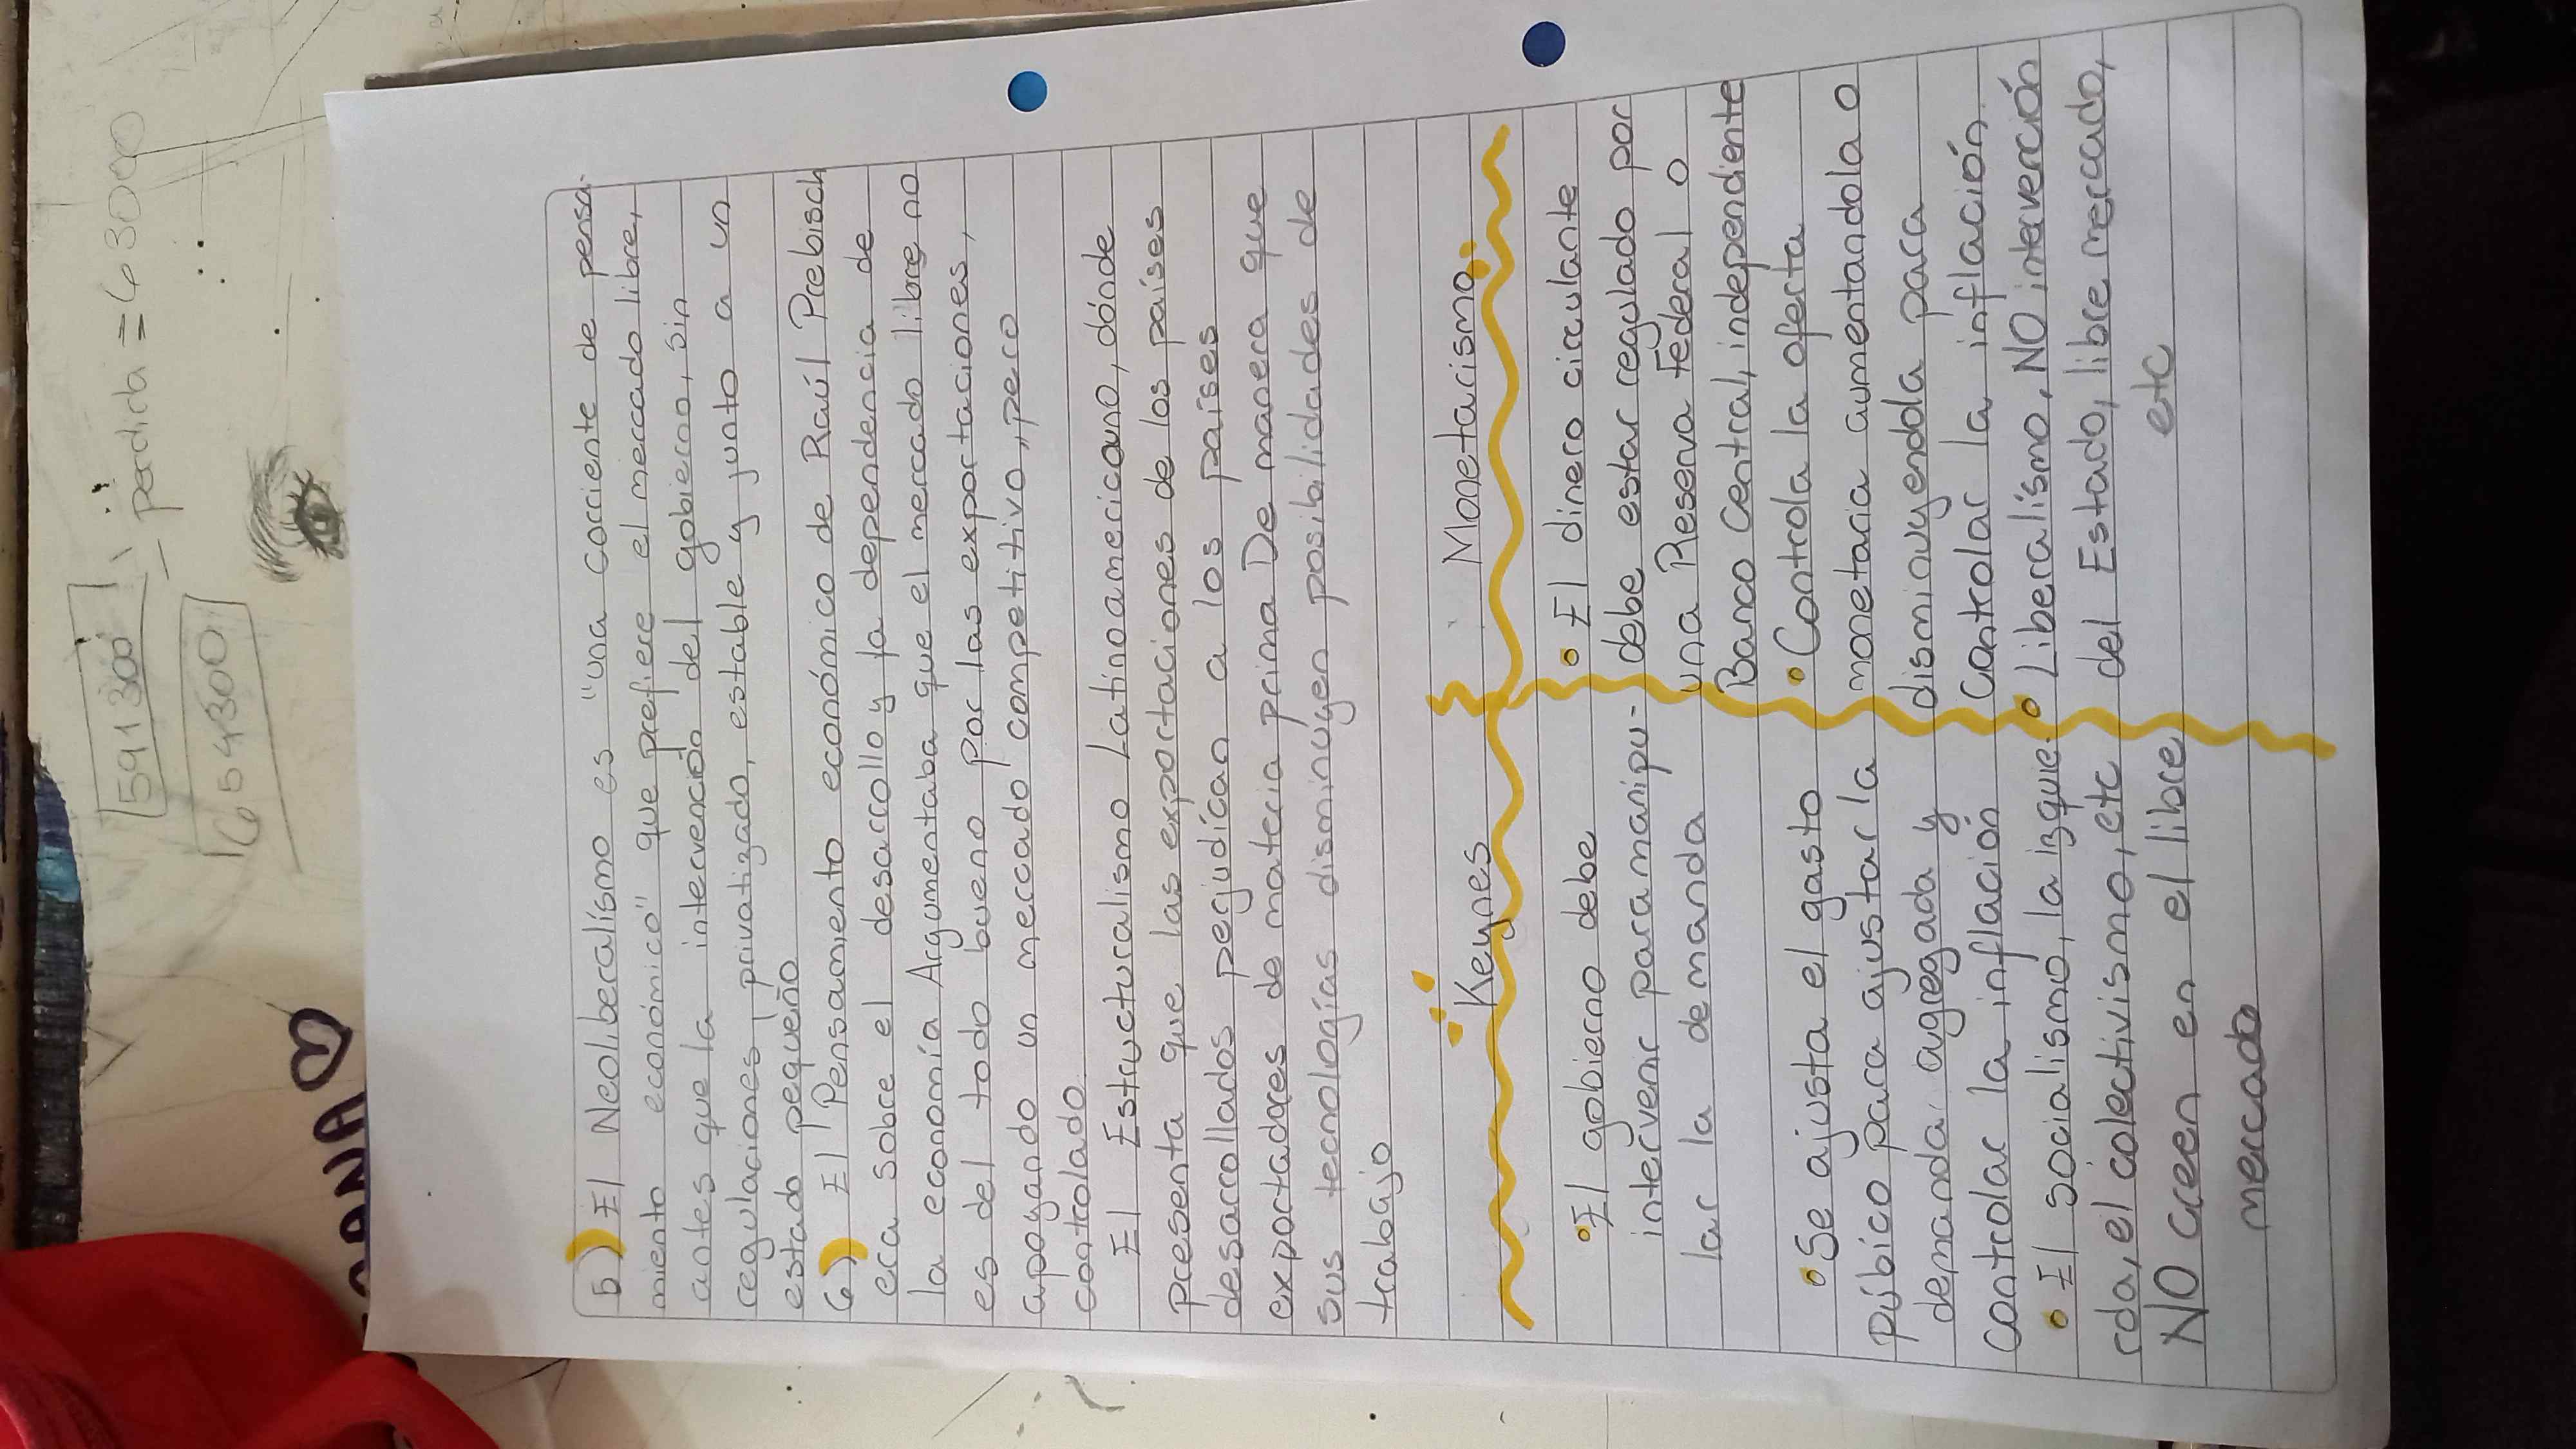 591300
— perdida = 63000
654300
5) El Neoliberalísmo es "una corriente de pensa-
miento económico" que prefiere el mercado libre,
antes que la intervenció del gobierno, sin
regulaciones, privatizado, estable y junto a un
estado pequeño
6) El Pensamiento económico de Raúl Prebisch
era sobre el desarrollo y la dependencia de
la economía Argumentaba que el mercado libre no
es del todo bueno por las exportaciones,
apoyando un mercado competitivo, pero
controlado
El Estructuralismo Latinoamericano, dónde
presenta que las exportaciones de los países
desarrollados perjudícan a los países
exportadores de materia prima De manera que
sus tecnologías disminuyen posibilidades de
trabajo
Keynes
• El gobierno debe
intervenir para manipu-
lar la demanda
• Se ajusta el gasto
Púbico para ajustar la
demanda agregada y
controlar la inflación
• El socialismo, la izquie-
rda, el colectivismo, etc
NO creen en el libre
mercado
Monetarismo
• El dinero circulante
debe estar regulado por
una Reserva Federal o
Banco Central, independiente
• Controla la oferta
monetaria aumentandola o
dismiouyendola para
controlar la inflación
• Liberalísmo, NO intervención
del Estado, libre mercado,
etc